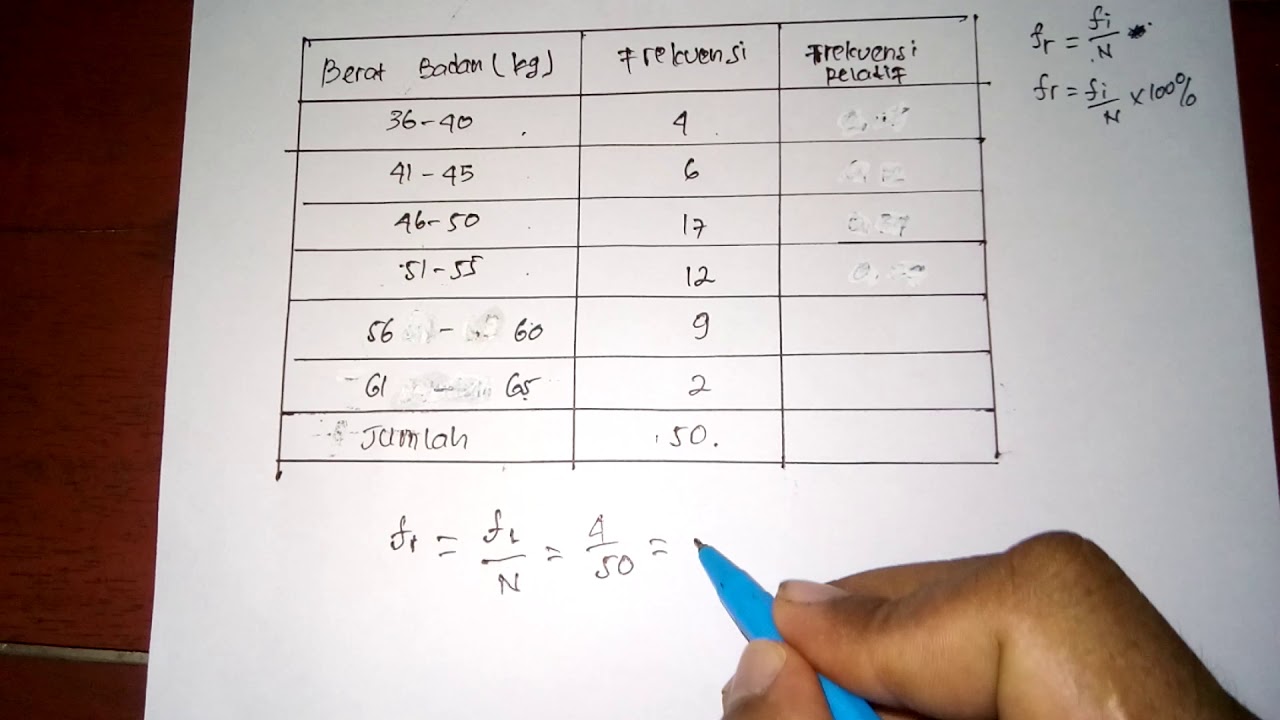 Berat Badan (kg) Frekuensi Frekuensi Relatif
36-40 4
41-45 6
46-50 17
51-55 12
56 - 60 9
61 - 65 2
Jumlah 50.
fr = fi/N
fr = fi/N x 100%
fr = fi/N = 4/50 =